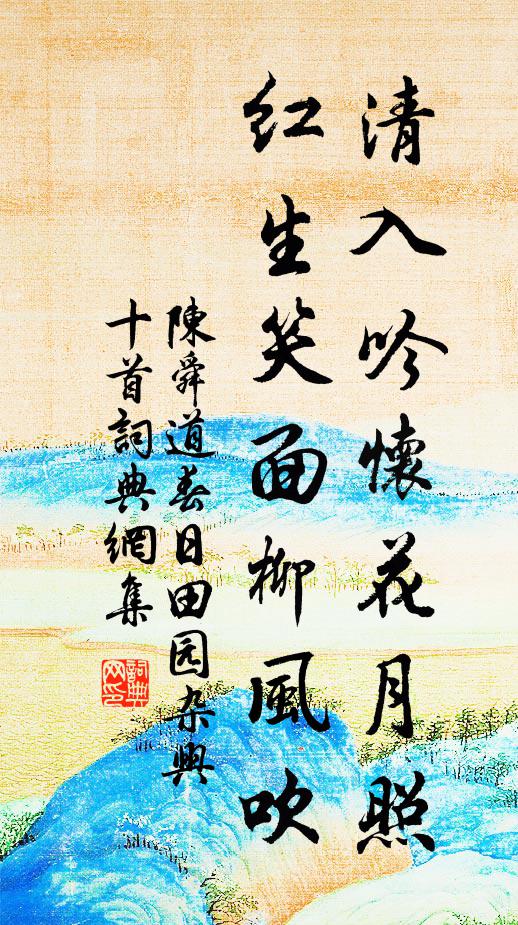 清入吟懷花月照
紅生笑面柳風吹
陳舜道春日田园杂興
十首詞典網集
詞典网印